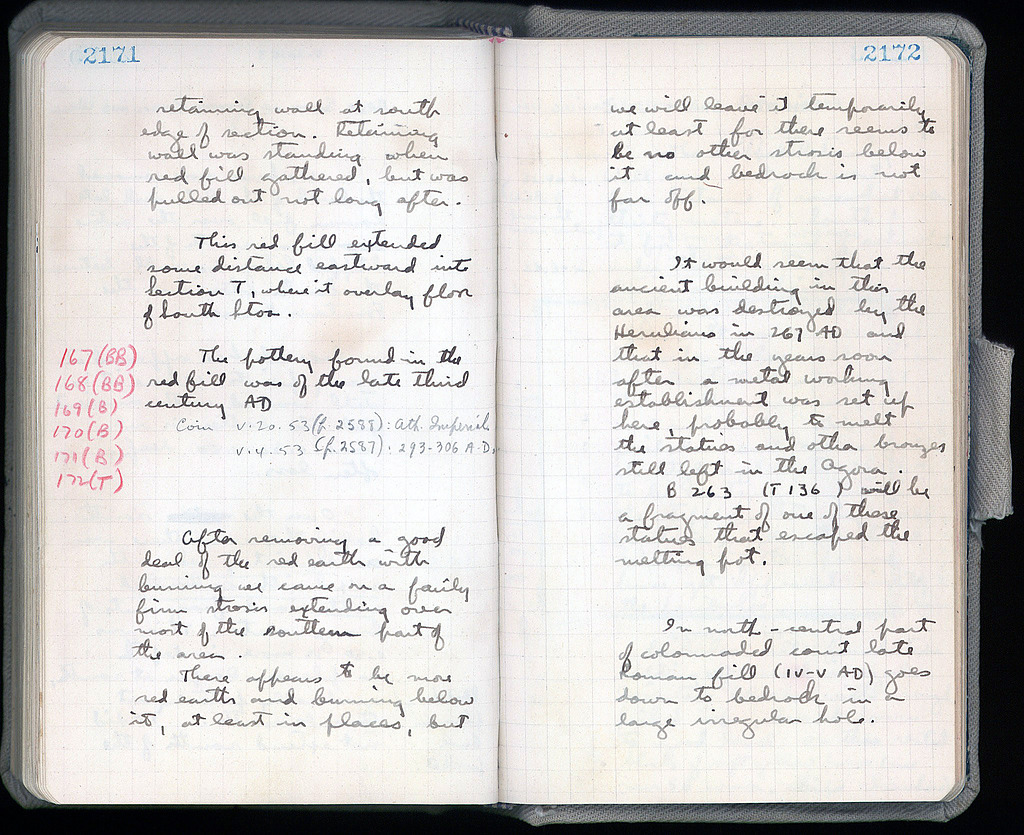 2171
retaining wall at south
edge of section. Retaining
wall was standing when
red fill gathered, but was
pulled out not long after.
This red fill extended
some distance eastward into
Section T, where it overlay floor
of South Stoa.
167 (BB)
168 (BB)
169 (B)
170 (B)
171 (B)
172 (T)
The pottery found in the
red fill was of the late third
century AD
Coin V.20.53 (p. 2588): Ath. Imperial
V.4.53 (p. 2587): 293-306 A.D.
After removing a good
deal of the red earth with
burning we came on a fairly
firm strosis extending over
most of the southern part of
the area.
There appears to be more
red earth and burning below
it, at least in places, but
2172
we will leave it temporarily
at least for there seems to
be no other strosis below
it and bedrock is not
far off.
It would seem that the
ancient building in this
area was destroyed by the
Herulians in 267 AD and
that in the years soon
after a metal working
establishment was set up
here, probably to melt
the statues and other bronzes
still left in the Agora.
B 263 (T 136) will be
a fragment of one of these
statues that escaped the
melting pot.
In north-central part
of colonnaded court late
Roman fill (IV-V AD) goes
down to bedrock in a
large irregular hole.